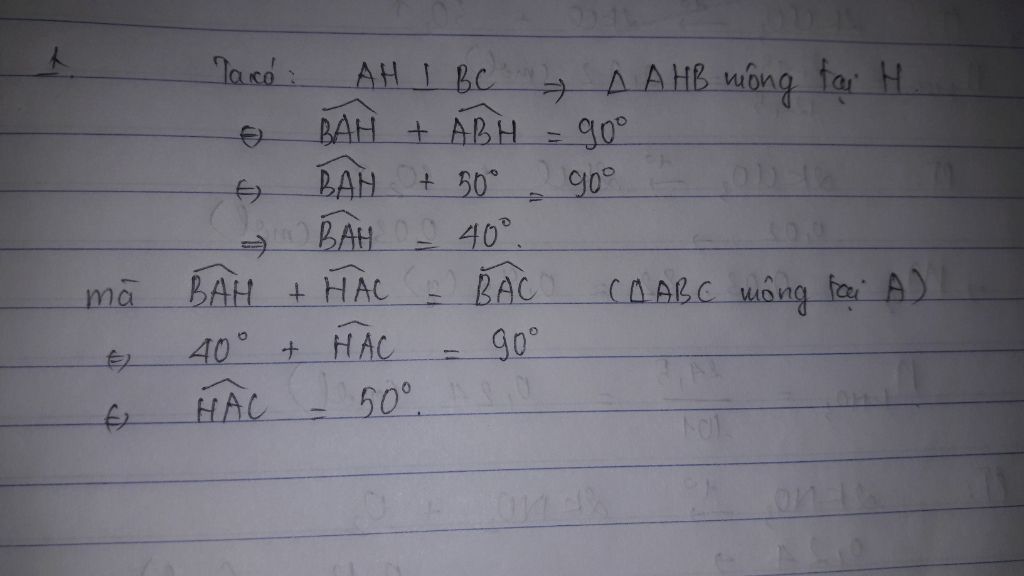 1. Ta có: AH ⊥ BC ⇒ Δ AHB vuông tại H.
⇔ \widehat{BAH} + \widehat{ABH} = 90°
⇔ \widehat{BAH} + 50° = 90°
⇒ \widehat{BAH} = 40°.
mà \widehat{BAH} + \widehat{HAC} = \widehat{BAC} (ΔABC vuông tại A)
⇔ 40° + \widehat{HAC} = 90°
⇔ \widehat{HAC} = 50°.